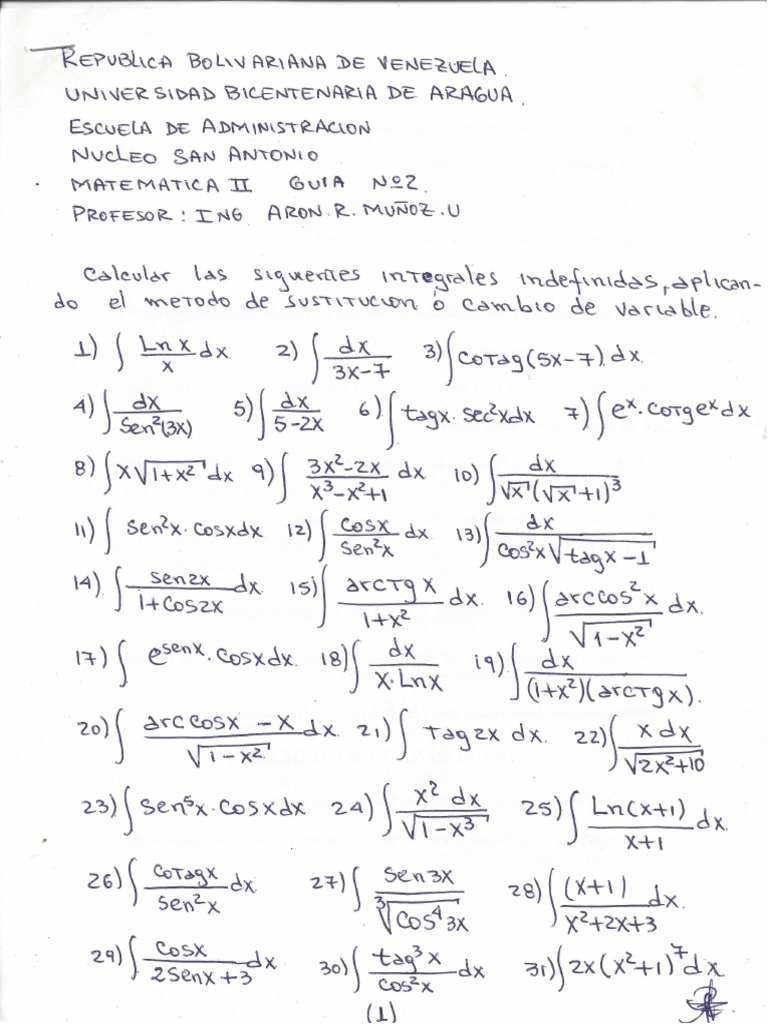 REPUBLICA BOLIVARIANA DE VENEZUELA.
UNIVERSIDAD BICENTENARIA DE ARAGUA.
ESCUELA DE ADMINISTRACION
NUCLEO SAN ANTONIO
MATEMATICA II GUIA Nº2.
PROFESOR: ING ARON.R. MUÑOZ.U
Calcular las siguientes integrales indefinidas, aplican-
do el metodo de sustitucion ó cambio de variable.
1) ∫ Ln x / x dx. 2) ∫ dx / 3x-7 3) ∫ cotag(5x-7). dx.
4) ∫ dx / Sen²(3x) 5) ∫ dx / 5-2x 6) ∫ tagx. sec²xdx 7) ∫ e^x. cotge^x dx
8) ∫ x√(1+x²) dx 9) ∫ 3x²-2x / x³-x²+1 dx 10) ∫ dx / √x (√x+1)³
11) ∫ sen²x. cosxdx 12) ∫ cosx / sen²x dx. 13) ∫ dx / cos²x√(tagx-1)
14) ∫ sen2x / 1+cos2x dx. 15) ∫ arctg x / 1+x² dx. 16) ∫ arccos²x / √(1-x²) dx.
17) ∫ e^senx. cosxdx. 18) ∫ dx / x.Lnx 19) ∫ dx / (1+x²)(arctgx).
20) ∫ arccosx - x / √(1-x²) dx. 21) ∫ tag2x dx. 22) ∫ x dx / √(2x²+10)
23) ∫ sen⁵x. cosxdx 24) ∫ x² dx / √(1-x³) 25) ∫ Ln(x+1) / x+1 dx.
26) ∫ cotagx / sen²x dx. 27) ∫ sen3x / ³√(cos⁴3x) 28) ∫ (x+1) / x²+2x+3 dx.
29) ∫ cosx / 2senx+3 dx 30) ∫ tag³x / cos²x dx 31) ∫ 2x(x²+1)⁷dx
(1)